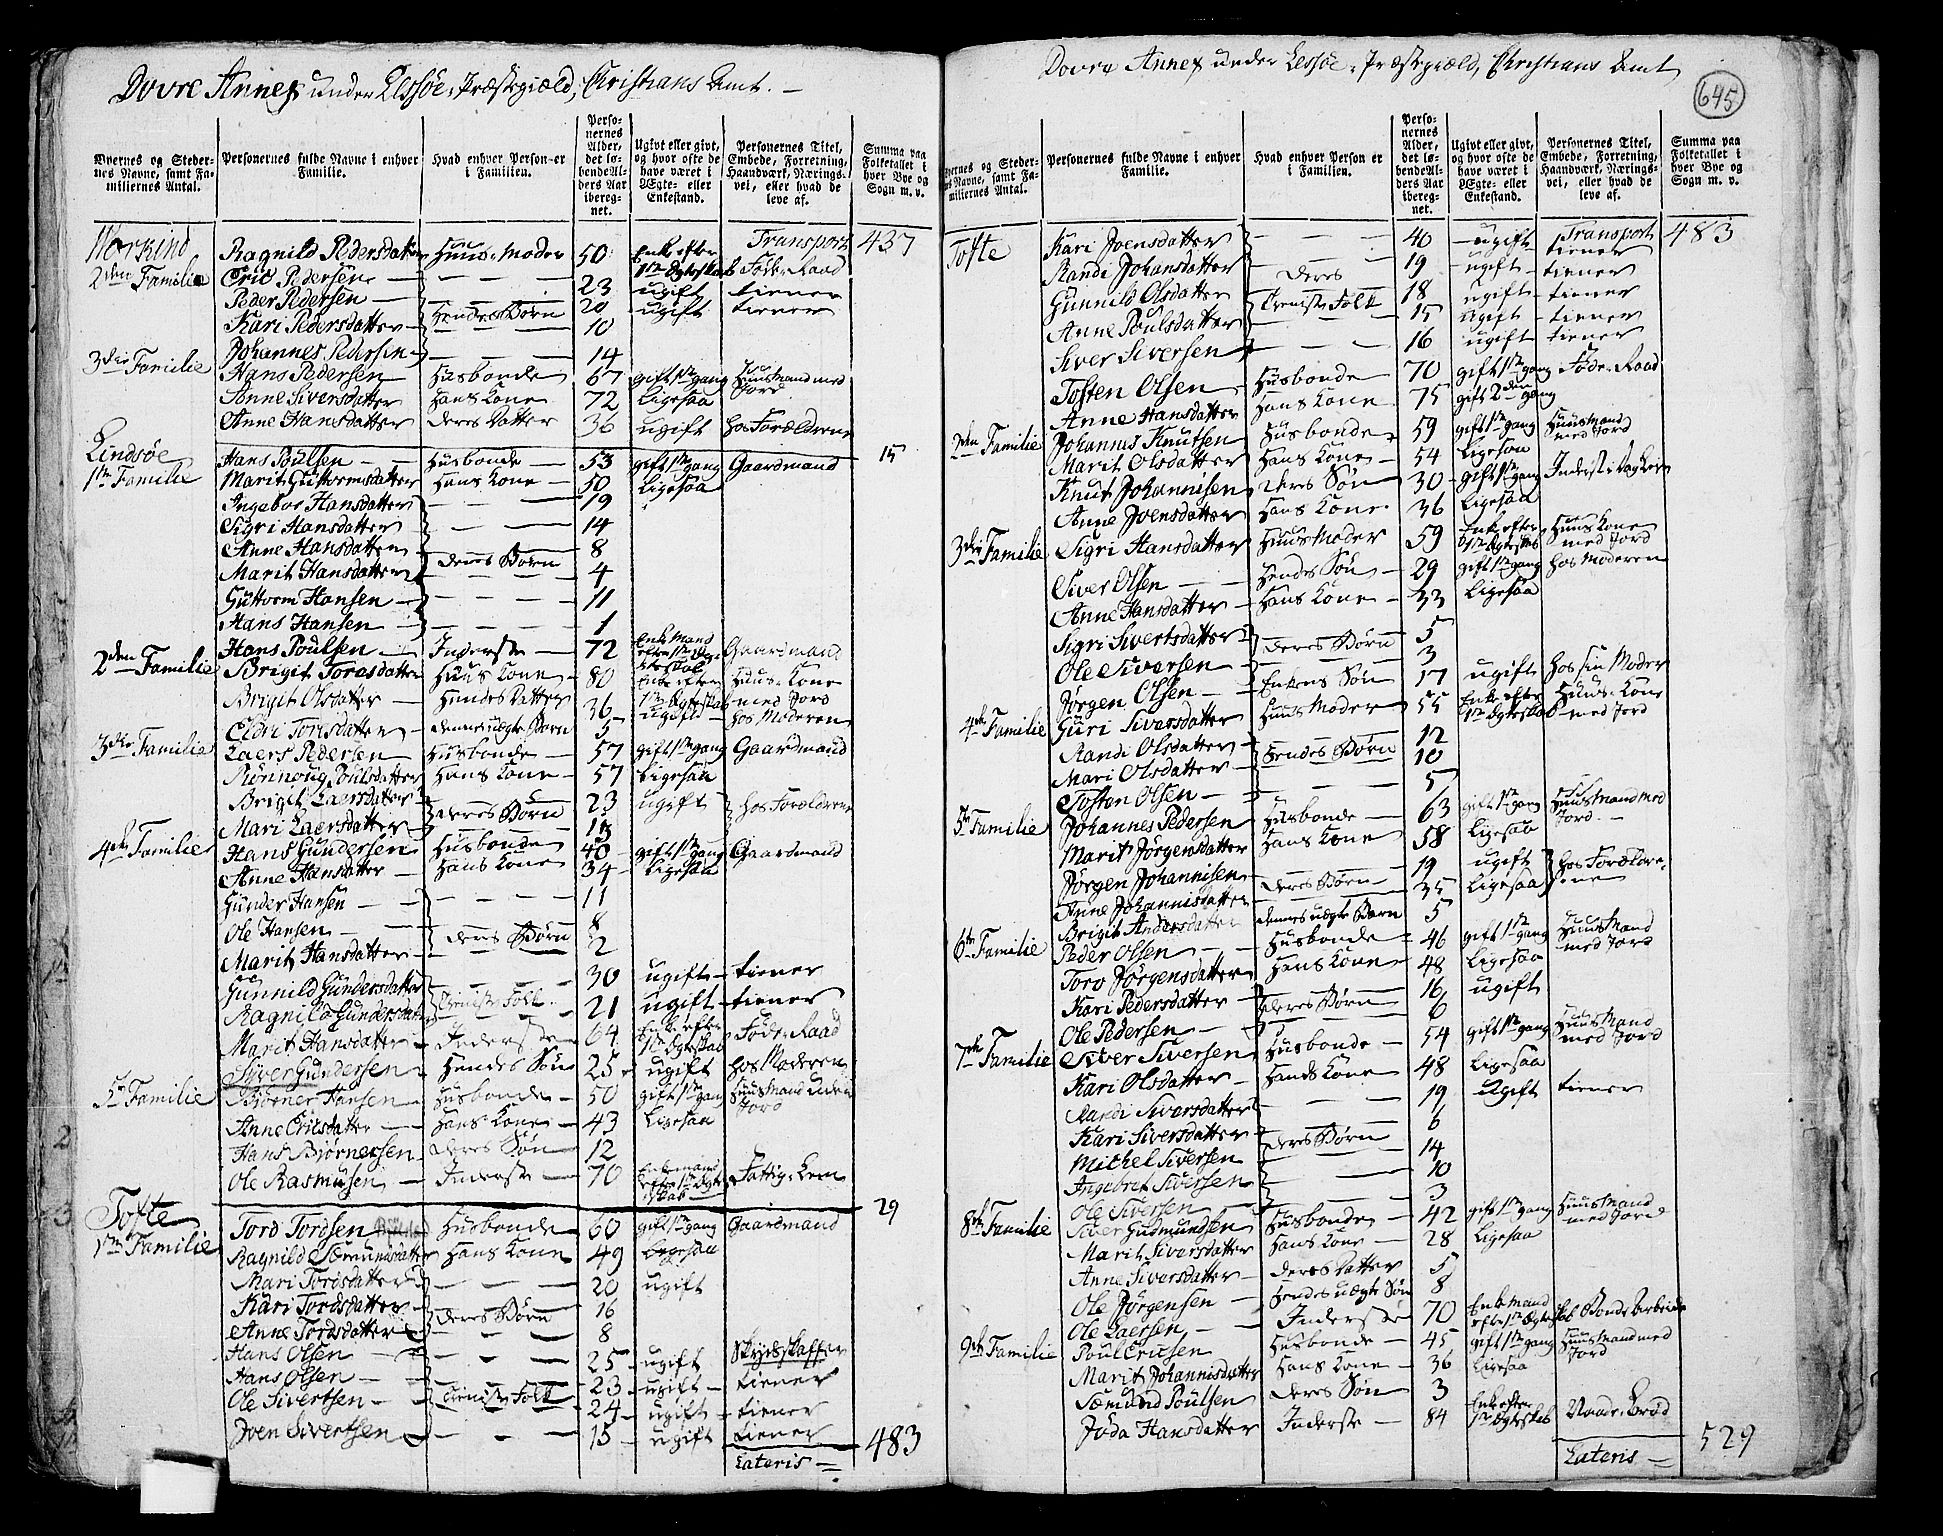 Dovre Annex under Lessøe Præstegiæld, Christians Amt.
Byernes og Stedernes Navne, samt Familiernes Antal. Personernes fulde Navne i enhver Familie. Hvad enhver Person er i Familien. Personernes Alder, det løbende Alders Aar iberegnet. Ugivt eller givt, og hvor ofte de have været i Ægte- eller Enkestand. Personernes Titel, Embede, Forretning, Haandværk, Næringsvei, eller hvad de leve af. Summa paa Folketallet i hver Bye og Sogn m. v.
Transport 437
Ragnild Pedersdatter Huus-Moder 50 Enke efter 1te Ægteskab Føde-Raad
2den Familie Eric Pedersen 23 ugift tiener
Peder Pedersen Hendes Børn 20 ugift tiener
Kari Pedersdatter 10
Johannes Pedersen 14
3die Familie Hans Pedersen Husbonde 67 gift 1te gang Huusmand med Jord
Anne Siversdatter Hans Kone 72 Ligesaa
Anne Hansdatter deres Datter 36 ugift hos Forældrene
Lindsøe 15
1te Familie Hans Poulsen Husbonde 53 gift 1te gang Gaardmand
Marit Guttormsdatter Hans Kone 50 Ligesaa
Ingebor Hansdatter 19
Sigri Hansdatter 14
Anne Hansdatter deres Børn 8
Marit Hansdatter 4
Guttorm Hansen 11
Hans Hansen 1
Hans Poulsen Inderste 72 Enkemand efter 1te Ægteskab Gaardmand
2den Familie Brigit Tordsdatter Huus Kone 80 Enke efter 1te Ægteskab Huus-Kone med Jord
Brigit Olsdatter Hendes Datter 36 ugift hos Moderen
Eldri Tordsdatter dennes uægte Barn 5
3die Familie Laers Pedersen Husbonde 57 gift 1te gang Gaardmand
Rønnoug Poulsdatter Hans Kone 57 Ligesaa
Brigit Laersdatter deres Børn 23 ugift hos Forældrene
Mari Laersdatter
4de Familie Hans Gundersen Husbonde 40 gift 1te gang Gaardmand
Anne Hansdatter Hans Kone 34 Ligesaa
Gunder Hansen 11
Ole Hansen deres Børn 8
Marit Hansdatter 2
Gunnild Gundersdatter 30 ugift tiener
Ragnild Gundersdatter Tieniste Folk 21 ugift tiener
Marit Hansdatter Inderste 64 Enke efter 1te Ægteskab Føde-Raad
Syver Gundersen Hendes Søn 25 ugift hos Moderen
5te Familie Biørner Hansen Husbonde 50 gift 1te gang Huusmand uden Jord
Anne Ericsdatter Hans Kone 43 Ligesaa
Hans Biørnersen deres Søn 12
Ole Rasmusen Inderste 70 Enkemand efter 1te Ægteskab Fattig-Lem
Tofte 29
1te Familie Tord Tordsen Husbonde 60 gift 1te gang Gaardmand
Ragnild Sæmundsdatter Hans Kone 49 Ligesaa
Mari Tordsdatter 20 ugift
Kari Tordsdatter deres Børn 16
Anne Tordsdatter 8
Hans Olsen 25 ugift Skydsskaffer
Hans Olsen 23 ugift tiener
Ole Sivertsen Tieniste Folk 24 ugift tiener
Joen Sivertsen 15 ugift tiener
Lateris 483
Dovre Annex under Lessøe Præstegiæld, Christians Amt
645
Byernes og Stedernes Navne, samt Familiernes Antal. Personernes fulde Navne i enhver Familie. Hvad enhver Person er i Familien. Personernes Alder, det løbende Alders Aar iberegnet. Ugivt eller givt, og hvor ofte de have været i Ægte- eller Enkestand. Personernes Titel, Embede, Forretning, Haandværk, Næringsvei, eller hvad de leve af. Summa paa Folketallet i hver Bye og Sogn m. v.
Transport 483
Tofte Kari Joensdatter 40 ugift tiener
Randi Johansdatter 19 ugift tiener
Gunnild Olsdatter deres Tieniste Folk 18 ugift tiener
Anne Poulsdatter 15 ugift tiener
Siver Siversen 16 ugift tiener
Tosten Olsen Husbonde 70 gift 1te gang Føde-Raad
Anne Hansdatter Hans Kone 75 gift 2den gang
2den Familie Johannes Knutsen Husbonde 59 gift 1te gang Huusmand med Jord
Marit Olsdatter Hans Kone 54 Ligesaa
Knut Johannesen deres Søn 30 gift 1te gang
Anne Joensdatter Hans Kone 36 Ligesaa
3die Familie Sigri Hansdatter Huus Moder 59 Enke efter 1te Ægteskab Huus Kone med Jord
Siver Olsen Hendes Søn 29 gift 1te gang hos Moderen
Anne Hansdatter Hans Kone 33 Ligesaa
Sigri Sivertsdatter deres Børn 5
Ole Siversen 3
Jørgen Olsen Enkens Søn 17 ugift hos sin Moder
4de Familie Guri Siversdatter Huus Moder 55 Enke efter 1te Ægteskab Huus-Kone med Jord
Randi Olsdatter 12
Mari Olsdatter Hendes Børn 10
Tosten Olsen 5
5te Familie Johannes Pedersen Husbonde 63 gift 1te gang Huusmand med Jord
Marit Jørgensdatter Hans Kone 58 Ligesaa
Jørgen Johannisen deres Børn 19 ugift hos Forældrene
Anne Johannisdatter 35 Ligesaa
Brigit Andersdatter dennes uægte Barn 5
6te Familie Peder Olsen Husbonde 46 gift 1te gang Huusmand med Jord
Toro Jørgensdatter Hans Kone 48 Ligesaa
Kari Pedersdatter deres Børn 16 ugift
Ole Pedersen 6
7de Familie Siver Siversen Husbonde 54 gift 1te gang Huusmand med Jord
Kari Olsdatter Hands Kone 48 Ligesaa
Randi Siversdatter 19 Ugift tiener
Kari Siversdatter deres Børn 6
Michel Siversen 14
Ingebret Siversen 10
Ole Siversen 3
8de Familie Siver Gudmundsen Husbonde 42 gift 1te gang Huusmand med Jord
Marit Siversdatter Hans Kone 28 Ligesaa
Anne Siversdatter deres Datter 5
Ole Jørgensen Hendes uægte Søn 8
Ole Laersen Inderste 70 Enkemand efter 1te Ægteskab Bonde Arbeide
9de Familie Poul Ericsen Husbonde 45 gift 1te gang Huusmand med Jord
Marit Johannisdatter Hans Kone 36 Ligesaa
Sæmund Poulsen deres Søn 3
Joda Hansdatter Inderste 84 Enke efter 1te Ægteskab Naade-Brød
Lateris 529